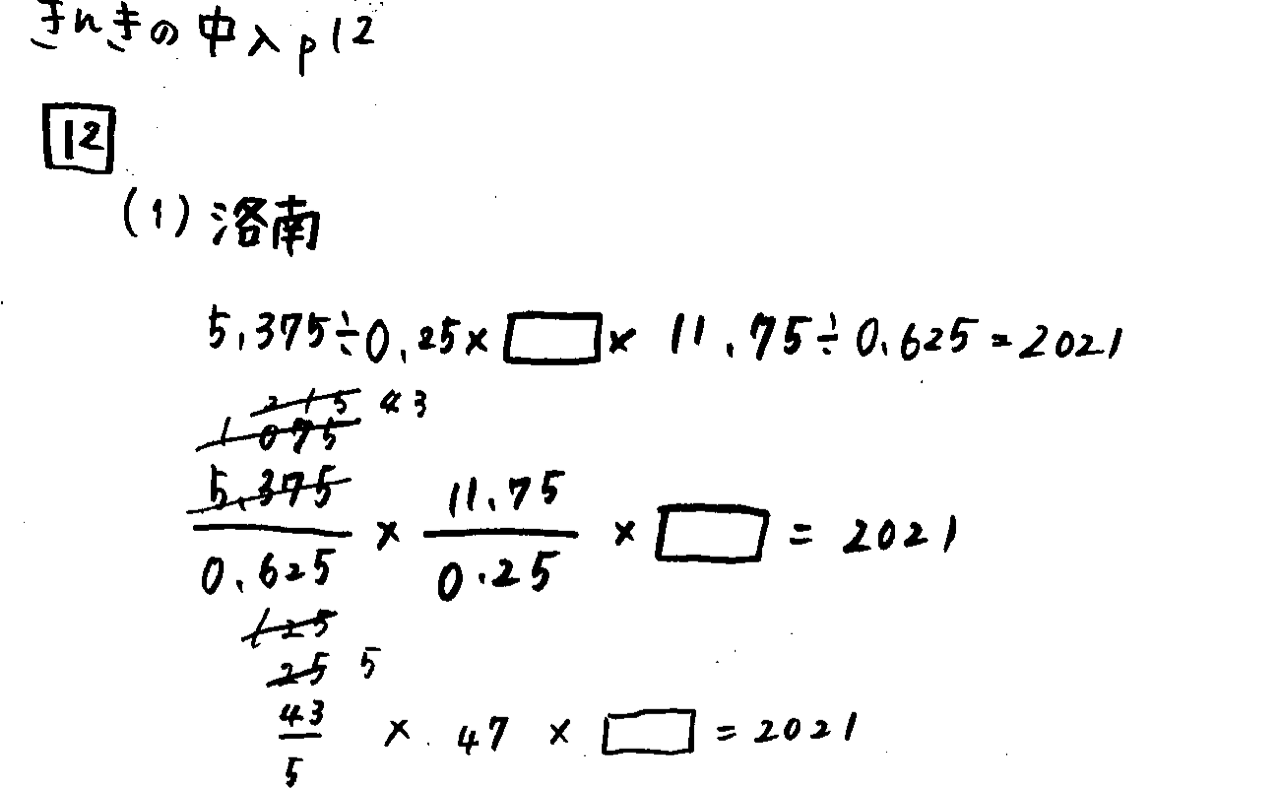 きんきの中入 p12
12
(1) 洛南
5.375÷0.25×□×11.75÷0.625=2021
215 43
1075
5.375 11.75
× × □ = 2021
0.625 0.25
125
25 5
43
× 47 × □ = 2021
5